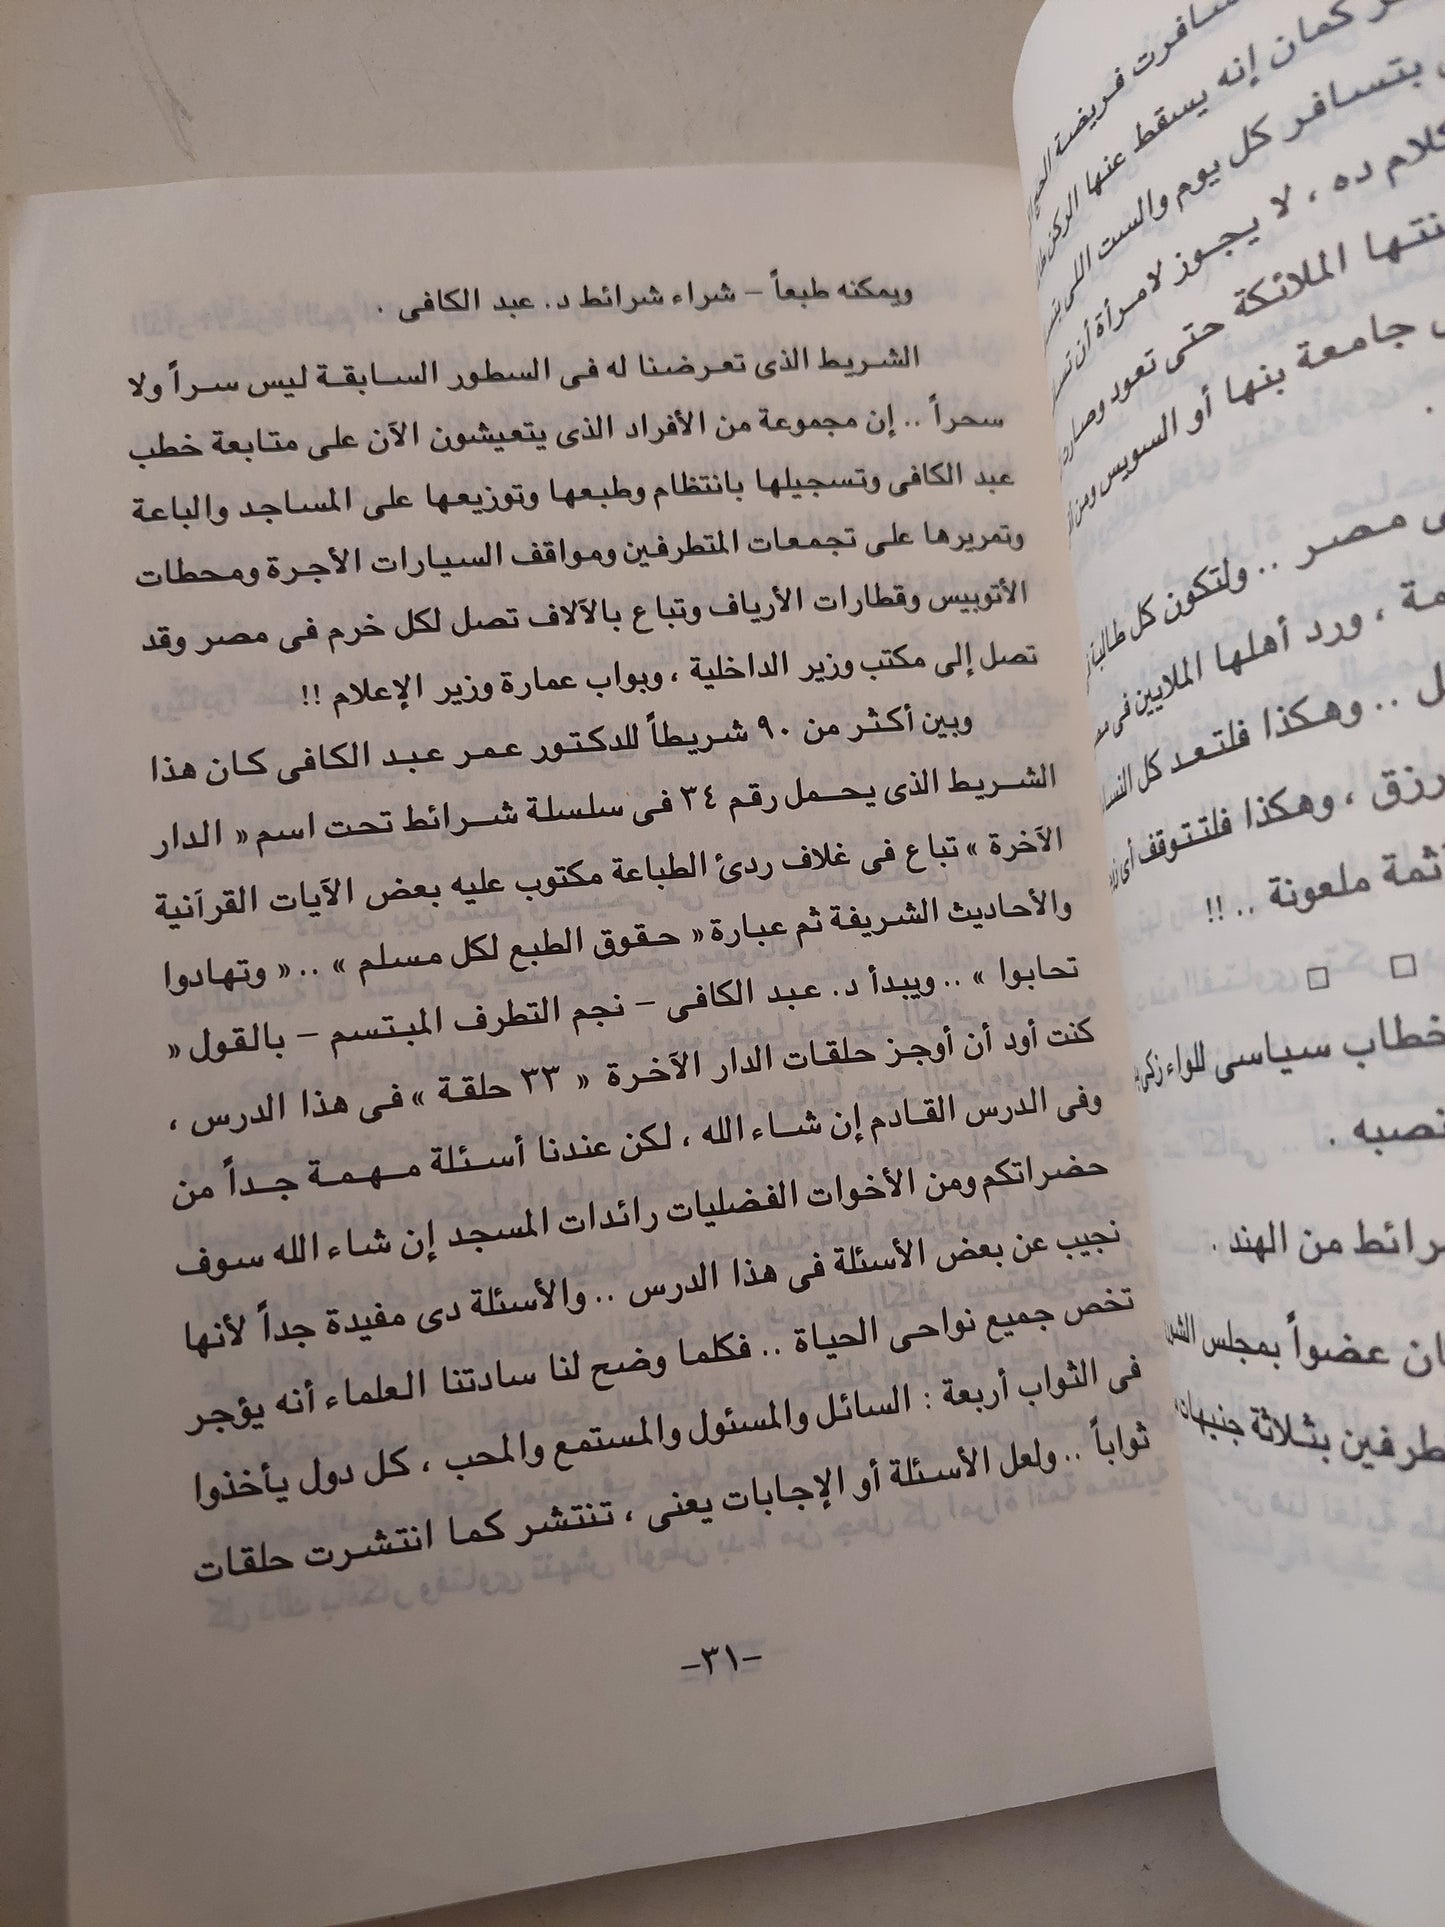 ويمكنه طبعاً – شراء شرائط د. عبد الكافى .
الشريط الذى تعرضنا له فى السطور السابقة ليس سراً ولا
سحراً .. إن مجموعة من الأفراد الذى يتعيشون الآن على متابعة خطب
عبد الكافى وتسجيلها بانتظام وطبعها وتوزيعها على المساجد والباعة
وتمريرها على تجمعات المتطرفين ومواقف السيارات الأجرة ومحطات
الأتوبيس وقطارات الأرياف وتباع بالآلاف تصل لكل خرم فى مصر وقد
تصل إلى مكتب وزير الداخلية ، وبواب عمارة وزير الإعلام !!
وبين أكثر من ٩٠ شريطاً للدكتور عمر عبد الكافى كان هذا
الشريط الذى يحمل رقم ٣٤ فى سلسلة شرائط تحت اسم « الدار
الآخرة » تباع فى غلاف ردئ الطباعة مكتوب عليه بعض الآيات القرآنية
والأحاديث الشريفة ثم عبارة « حقوق الطبع لكل مسلم » .. « وتهادوا
تحابوا » .. ويبدأ د. عبد الكافى – نجم التطرف المبتسم – بالقول «
كنت أود أن أوجز حلقات الدار الآخرة « ٣٣ حلقة » فى هذا الدرس ،
وفى الدرس القادم إن شاء الله ، لكن عندنا أسئلة مهمة جداً من
حضراتكم ومن الأخوات الفضليات رائدات المسجد إن شاء الله سوف
نجيب عن بعض الأسئلة فى هذا الدرس .. والأسئلة دى مفيدة جداً لأنها
تخص جميع نواحى الحياة .. فكلما وضح لنا سادتنا العلماء أنه يؤجر
فى الثواب أربعة : السائل والمسئول والمستمع والمحب ، كل دول يأخذوا
ثواباً .. ولعل الأسئلة أو الإجابات يعنى ، تنتشر كما انتشرت حلقات
-٣١-
سافرت فريضة الحج
كمان إنه يسقط عنها الركن
بتسافر كل يوم والست اللى
ده ، لا يجوز لامرأة أن
الملائكة حتى تعود
جامعة بنها أو السويس
مصر .. ولتكون كل طالبة
، ورد أهلها الملايين فى
.. وهكذا فلتعد كل
رزق ، وهكذا فلتتوقف أى
ملعونة .. !!
خطاب سياسى للواء زكى
.
من الهند .
عضواً بمجلس
بثلاثة جنيهات